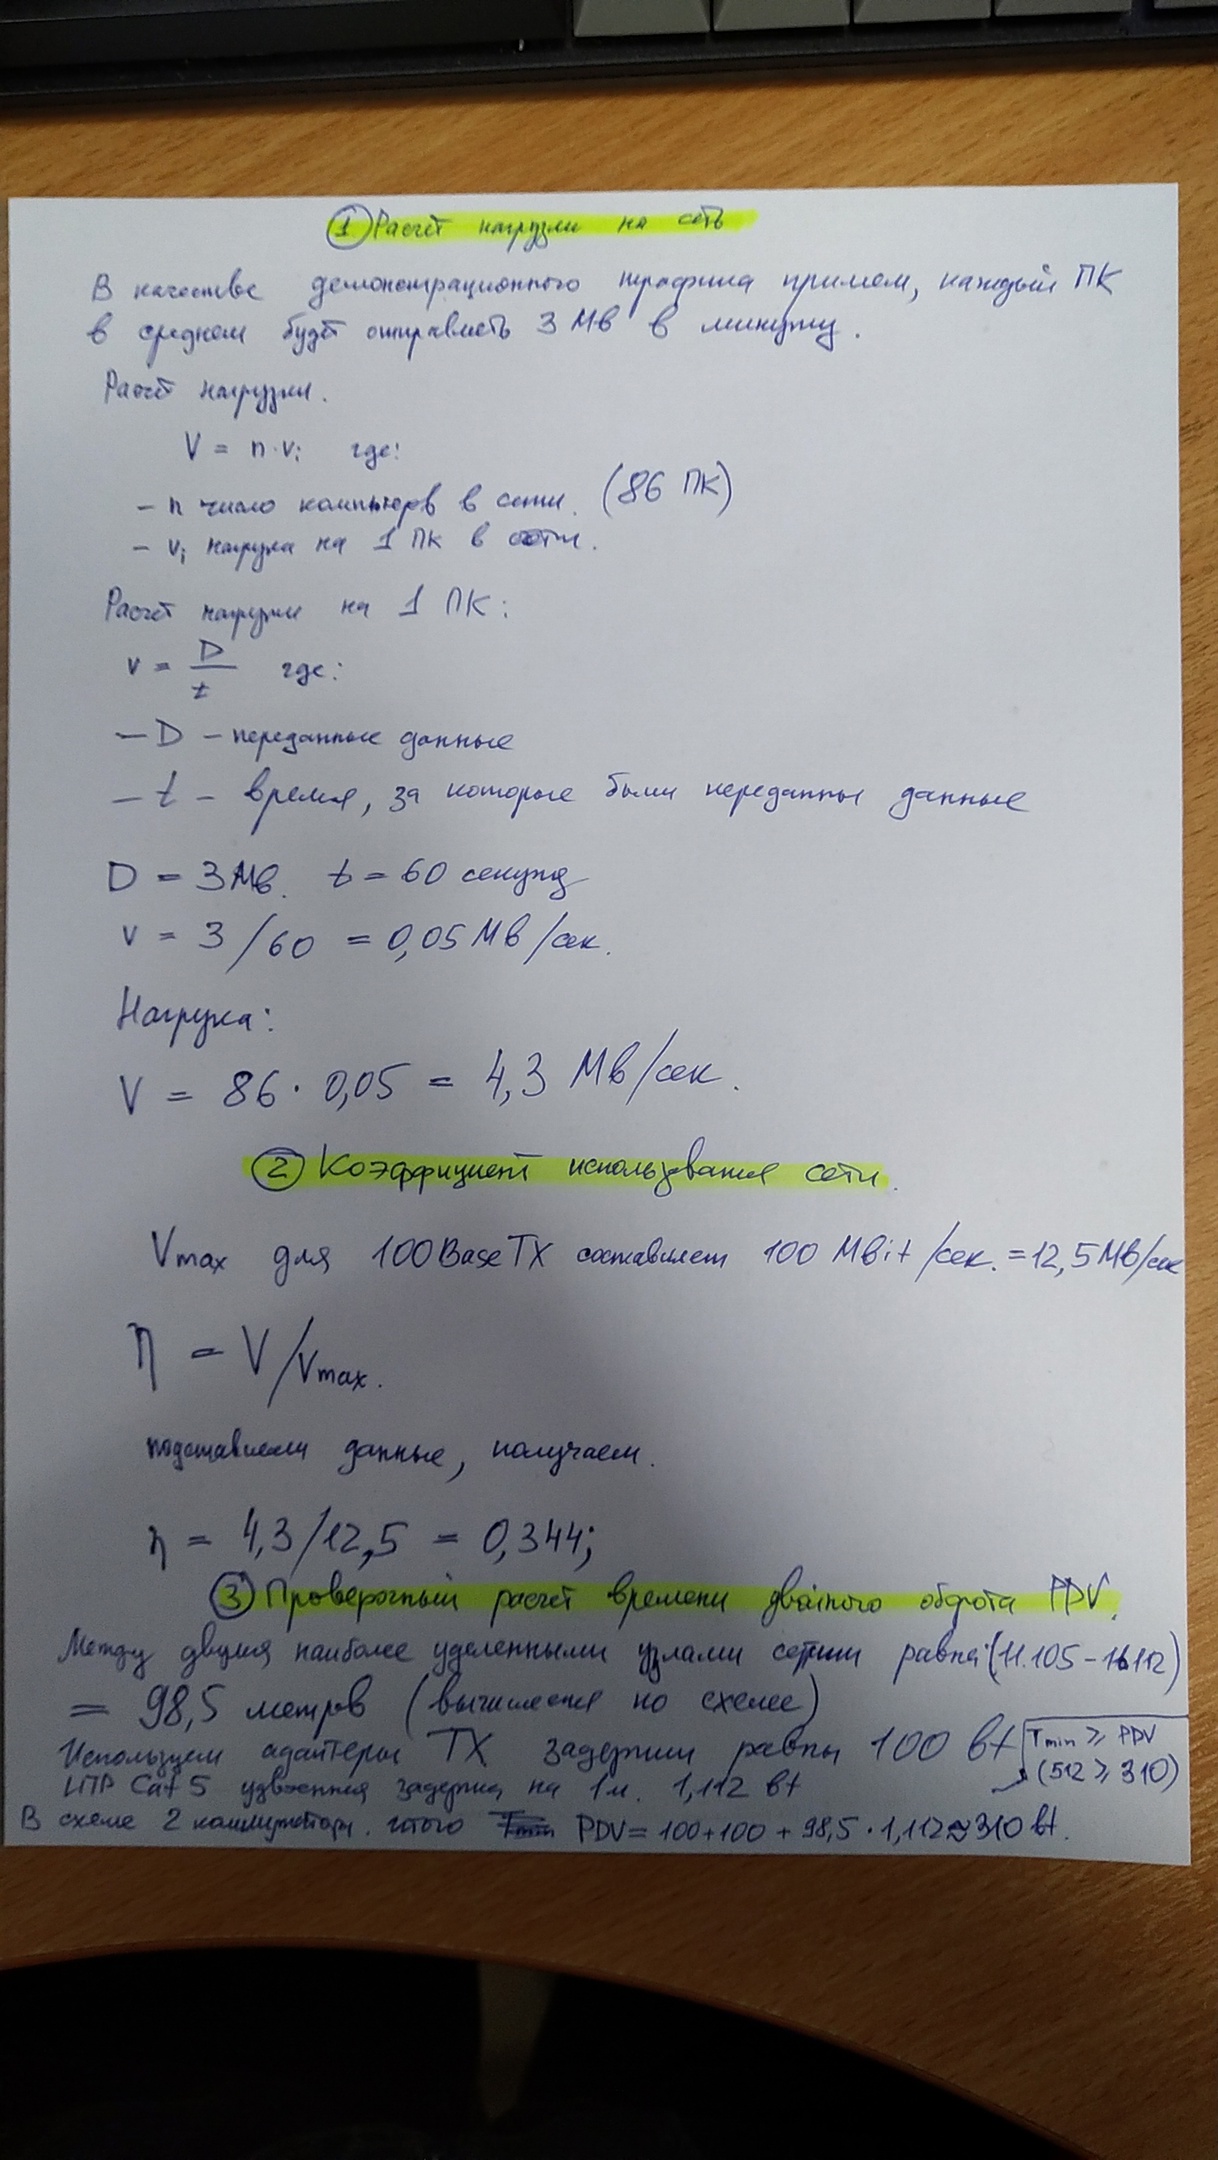 ① Расчёт нагрузки на сеть
В качестве демонстрационного трафика примем, каждый ПК
в среднем будет отправлять 3 Мв в минуту.
Расчёт нагрузки.
V = n · vi где:
– n число компьютеров в сети. (86 ПК)
– vi нагрузка на 1 ПК в сети.
Расчёт нагрузки на 1 ПК:
v = D/t где:
– D – переданные данные
– t – время, за которые были переданны данные
D = 3 Мв. t = 60 секунд
v = 3/60 = 0,05 Мв/сек.
Нагрузка:
V = 86 · 0,05 = 4,3 Мв/сек.
② Коэффициент использования сети.
Vmax для 100BaseTX составляет 100 Mbit/сек. = 12,5 Мв/сек
η = V/Vmax.
подставляем данные, получаем.
η = 4,3/12,5 = 0,344;
③ Проверочный расчёт времени двойного оборота PDV.
Между двумя наиболее удаленными узлами сети равна (11.105 –
= 98,5 метров (вычисляется по схеме)
Используем адаптеры TX задержки равны 100 bt
Tmin ≥ PDV
(512 ≥ 310)
Cat 5 удвоенная задержка на 1 м. 1,112 bt
В схеме 2 коммутатора. итого PDV = 100 + 100 + 98,5 · 1,112 ≈ 310 bt.